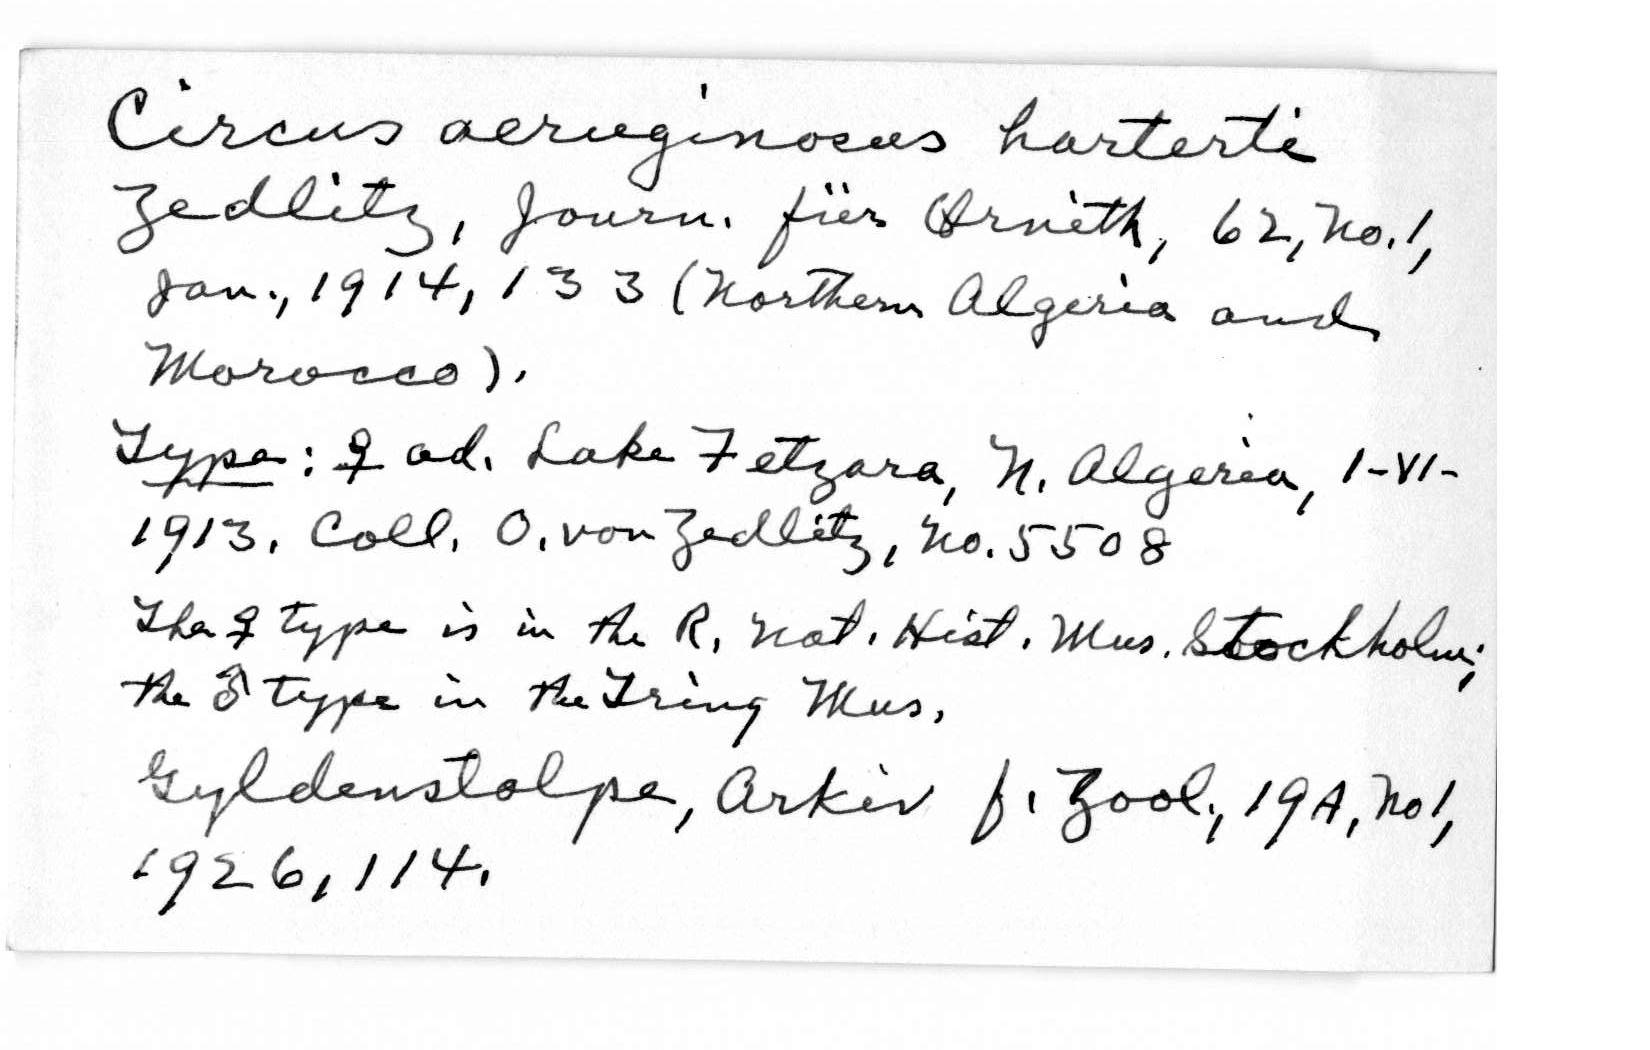 Circus aeruginosus harterti
Zedlitz, Journ. für Ornith, 62, No. 1,
Jan., 1914, 133 (Northern Algeria and
Morocco).
Type: ♀ ad. Lake Fetzara, N. Algeria, 1-VI-
1913. Coll. O. von Zedlitz, No. 5508
The ♀ type is in the R. Nat. Hist. Mus. Stockholm;
the ♂ type in the Tring Mus.
Gyldenstolpe, Arkiv f. Zool., 19A, No 1,
1926, 114.